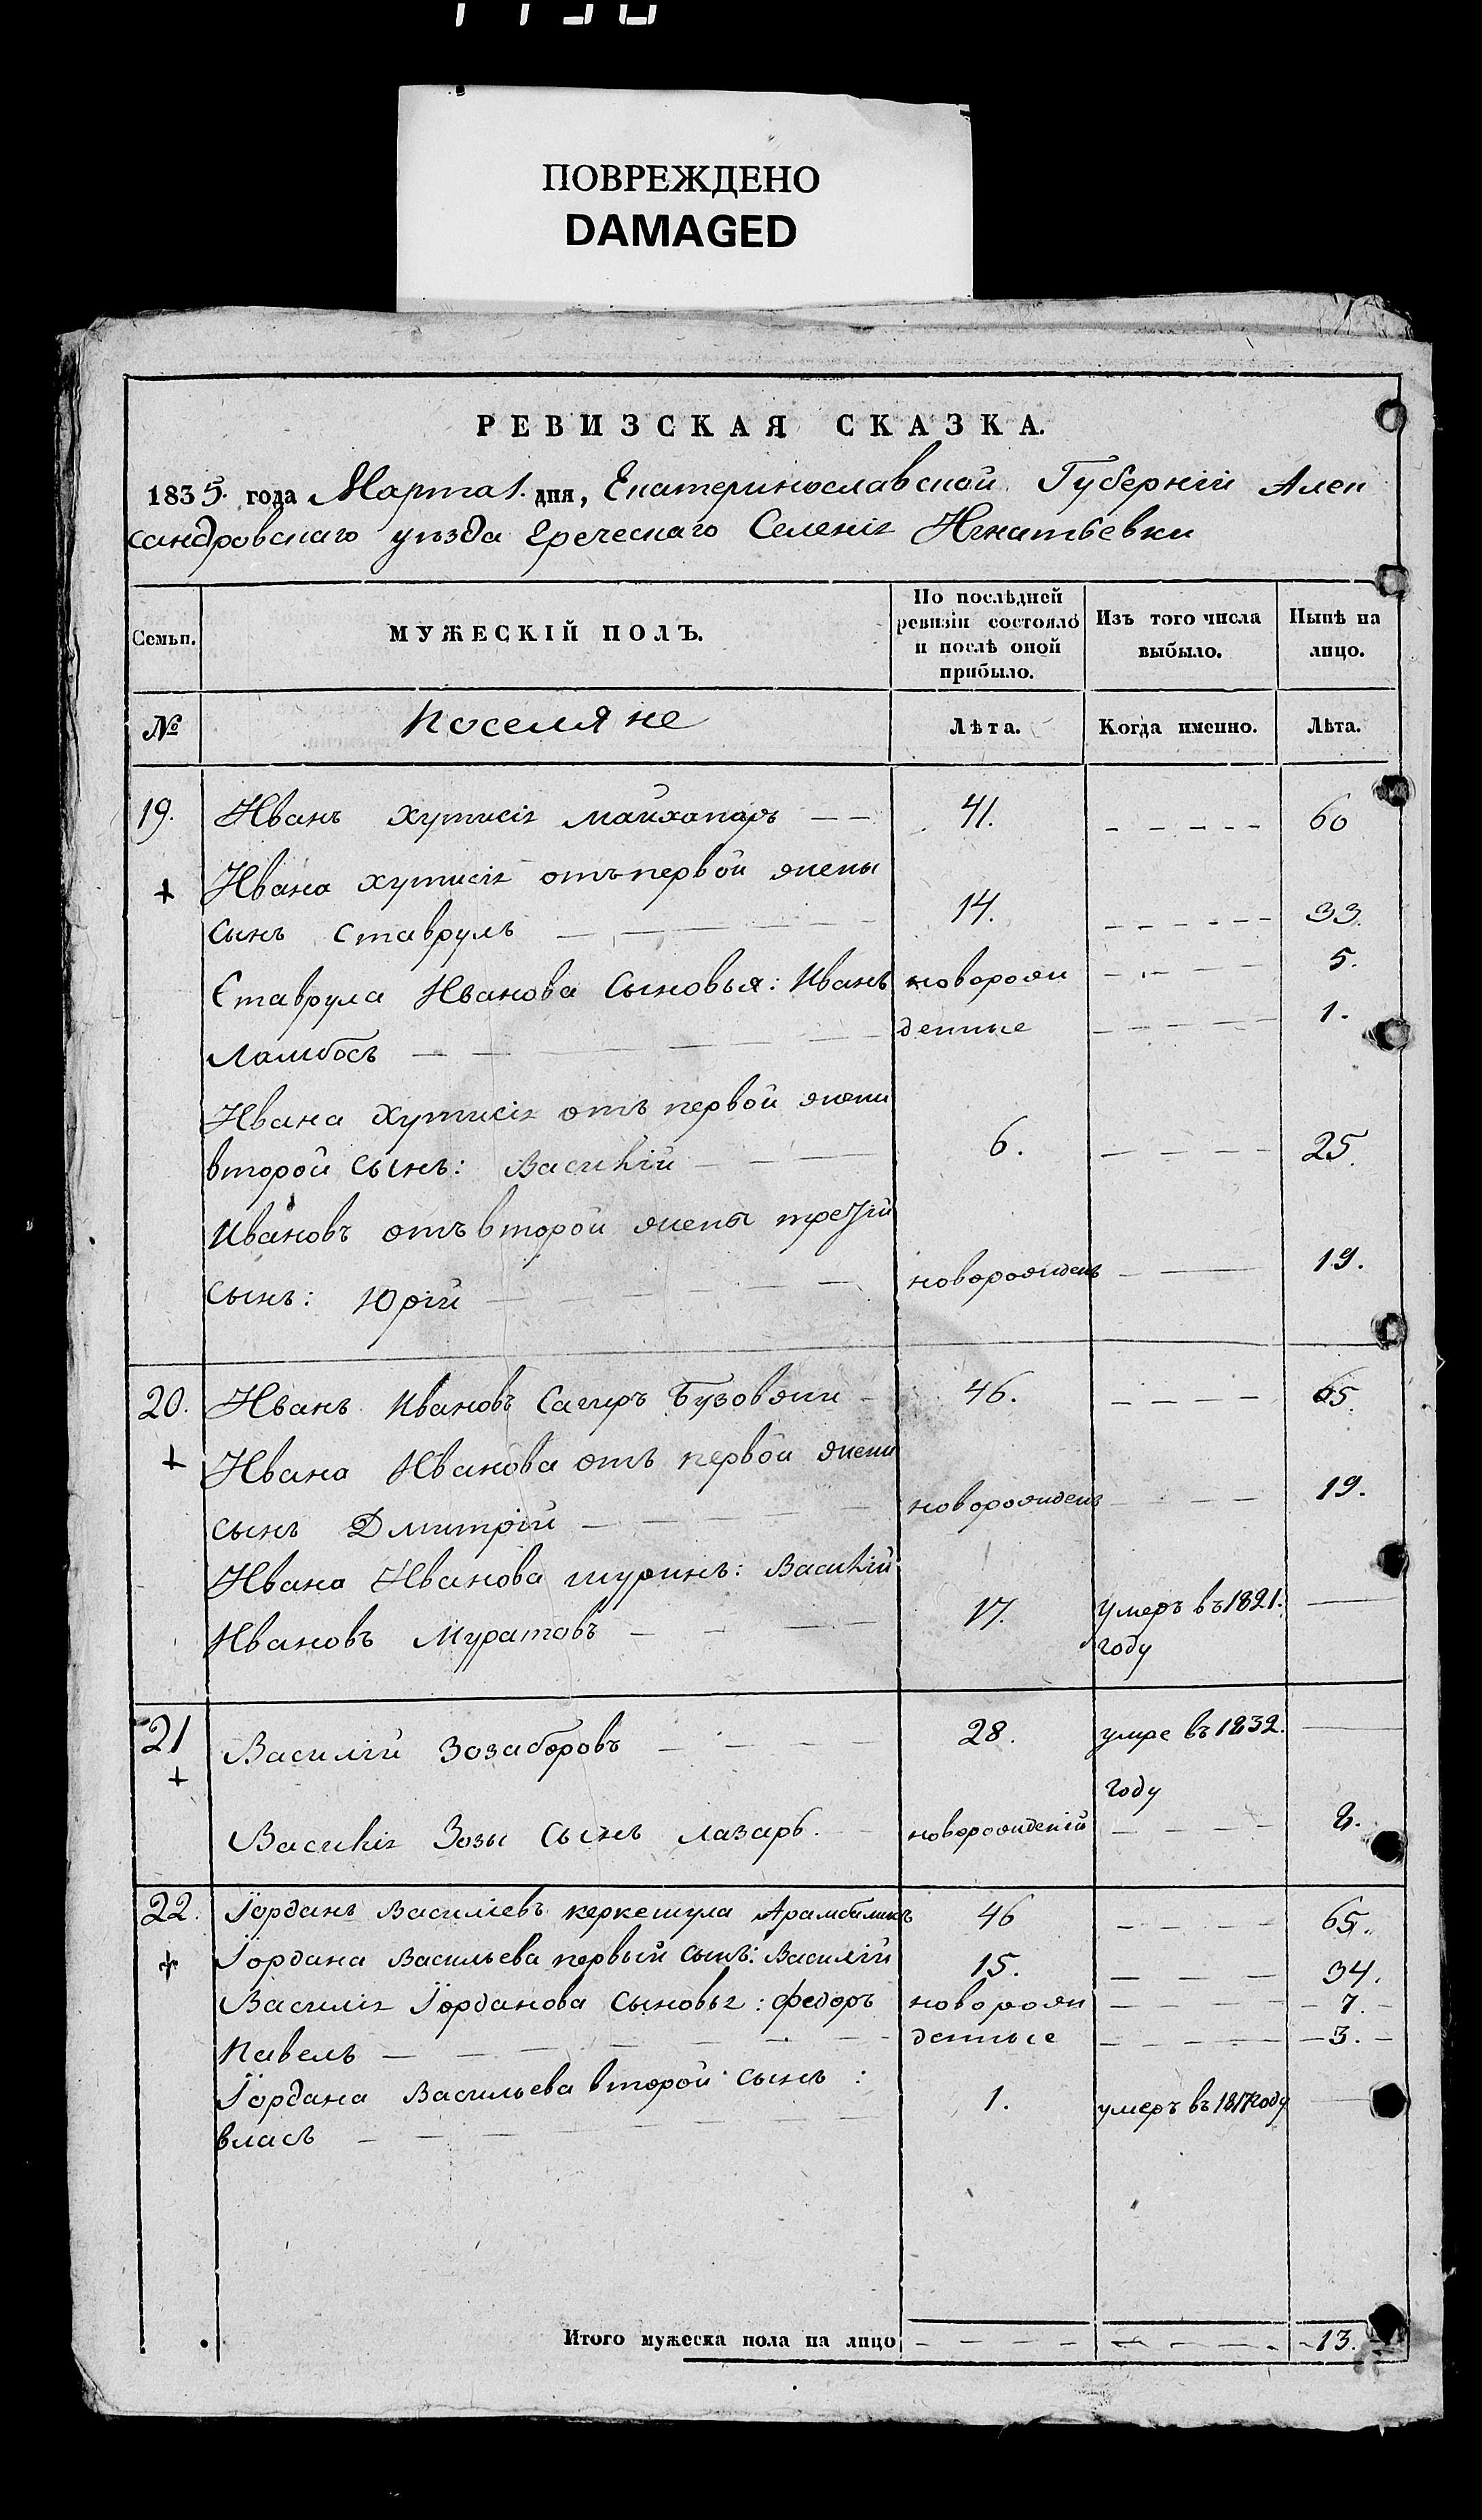 ПОВРЕЖДЕНО
DAMAGED
РЕВИЗСКАЯ СКАЗКА.
1835. года Марта 1. дня, Екатеринославской Губерніи Алек
сандровскаго уѣзда Греческаго Селенія Игнатьевки
Семьи. МУЖЕСКІЙ ПОЛЪ. По послѣдней ревизіи состояло и послѣ оной прибыло. Изъ того числа выбыло. Нынѣ на лицо.
№ Поселяне Лѣта. Когда именно. Лѣта.
19. Иванъ Хутисія Майхапаръ 41. 60
+ Ивана Хутисія отъ первой жены
сынъ Ставрулъ 14. 33.
Ставрула Иванова Сыновья: Иванъ новорож 5.
Ламбосъ денные 1.
Ивана Хутисія отъ первой жены
второй сынъ: Василій 6. 25.
Ивановъ отъ второй жены третій
сынъ: Юрій новорожденъ 19.
20. Иванъ Ивановъ Сагиръ Бузовжи 46. 65.
+ Ивана Иванова отъ первой жены
сынъ Дмитрій новорожденъ 19.
Ивана Иванова шуринъ: Василій
Ивановъ Муратовъ 17. умеръ въ 1821. году
21 Василій Зозаборовъ 28. умре въ 1832. году
+ Василія Зозы Сынъ лазарь. новорожденій 8.
22. Іорданъ Василіевъ керкешула Арамбаликъ 46 65.
+ Іордана Васильева первый сынъ: Василій 15. 34.
Василія Іорданова Сыновья: федоръ новорож 7.
Павелъ денные 3.
Іордана Васильева второй сынъ:
власъ 1. умеръ въ 1817 году
Итого мужеска пола на лицо 13.